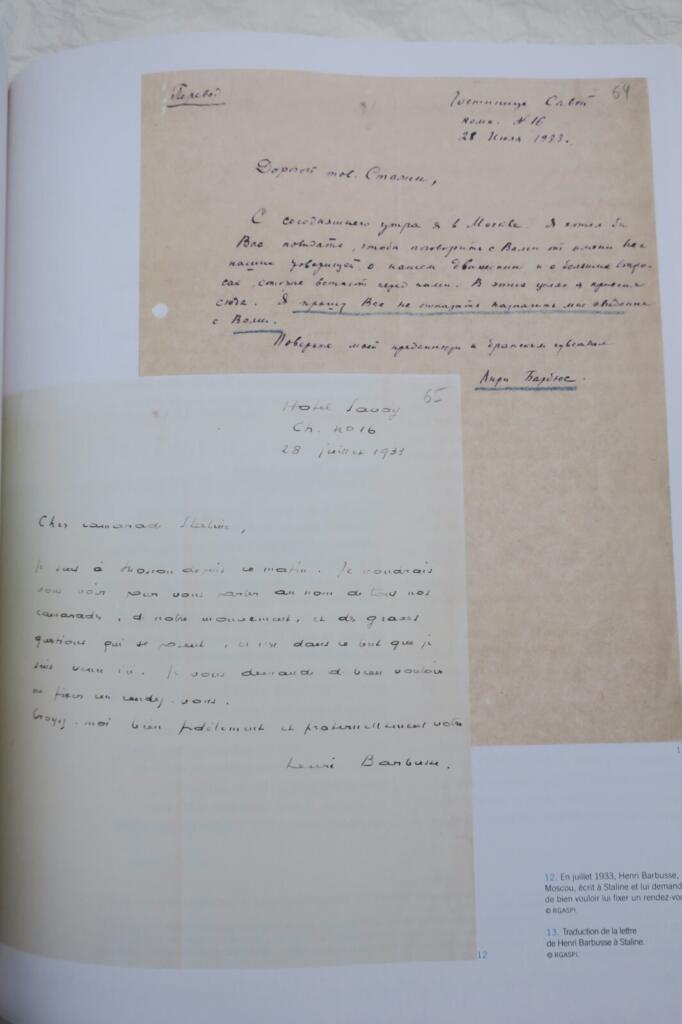 Перевод
64
Гостиница Савой
комн. № 16
28 Июля 1933г.
Дорогой тов. Сталин,
С сегодняшнего утра я в Москве. Я хотел бы
Вас повидать, чтобы поговорить с Вами от имени всех
наших товарищей, о нашем движении и о больших вопро-
сах, которые встают перед нами. В этих целях я приехал
сюда. Я прошу Вас не отказать назначить мне свидание
с Вами.
Поверьте моей преданности и братским чувствам
Анри Барбюс.
65
Hotel Savoy
Ch. no 16
28 juillet 1933
Cher camarade Staline,
Je suis à Moscou depuis ce matin. Je voudrais
vous voir pour vous parler au nom de tous nos
camarades, de notre mouvement, et des grandes
questions qui se posent, et c'est dans ce but que je
suis venu ici. Je vous demande de bien vouloir
me fixer un rendez-vous.
Croyez-moi bien fidèlement et fraternellement votre
Henri Barbusse.
1
12. En juillet 1933, Henri Barbusse,
Moscou, écrit à Staline et lui demand
de bien vouloir lui fixer un rendez-vou
© RGASPI.
13. Traduction de la lettre
de Henri Barbusse à Staline.
© RGASPI.
12